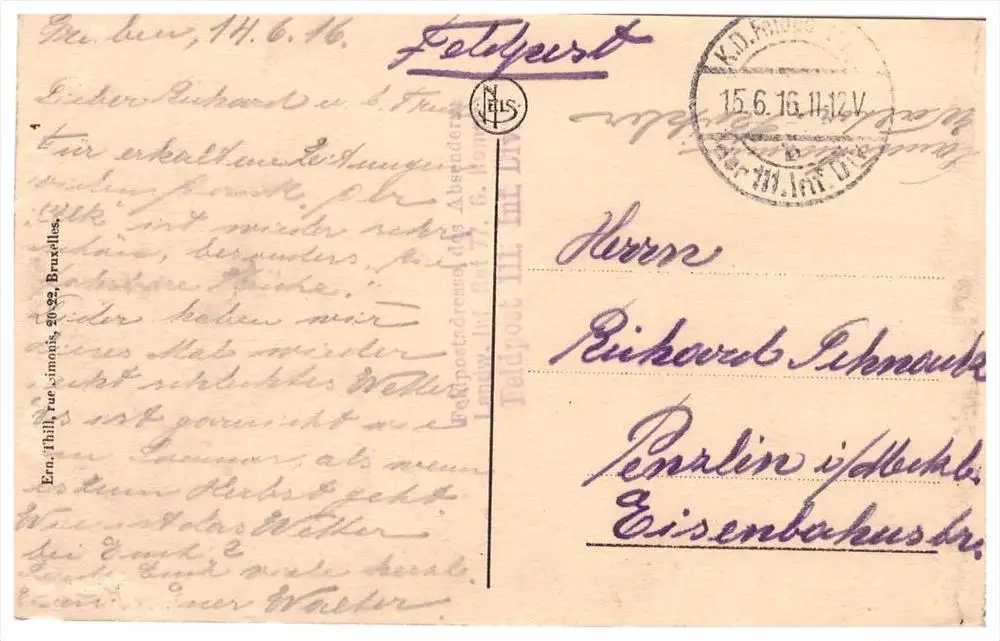 14.6.16.
Feldpost
Lieber Richard u. l.
Für erhaltene Zeitungen
vielen Dank. Der
"Ulk" ist wieder sehr
schön, besonders
Leider haben wir
dieses Mal wieder
recht schlechtes Wetter
Es ist garnicht wie
im Sommer, als wenn
es zum Herbst geht.
Wie ist das Wetter
bei Euch?
Euch viele herzl.
Walter
Ern. Thill, rue Simonis, 20-22, Bruxelles.
1
NELS
Feldpostadresse des Absenders:
Landw. Inf. Rgt 77. 6. Komp
Feldpost III. Inf. Div
K.D. Feldpost
15.6.16.11-12V
b
der 111. Inf. Div.
Herrn
Richard
Penzlin i/Meckb.
Eisenbahnstr.